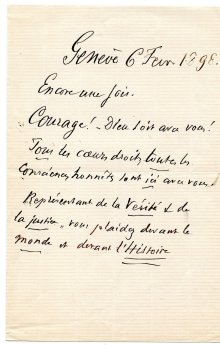 Genève 6 Fevr 1898.
Encore une fois.
Courage! Dieu soit avec vous!
Tous les cœurs droits, toutes les
Consciences honnêtes sont ici avec vous.
Représentant de la Vérité & de
la justice, vous plaidez devant le
monde et devant l'Histoire